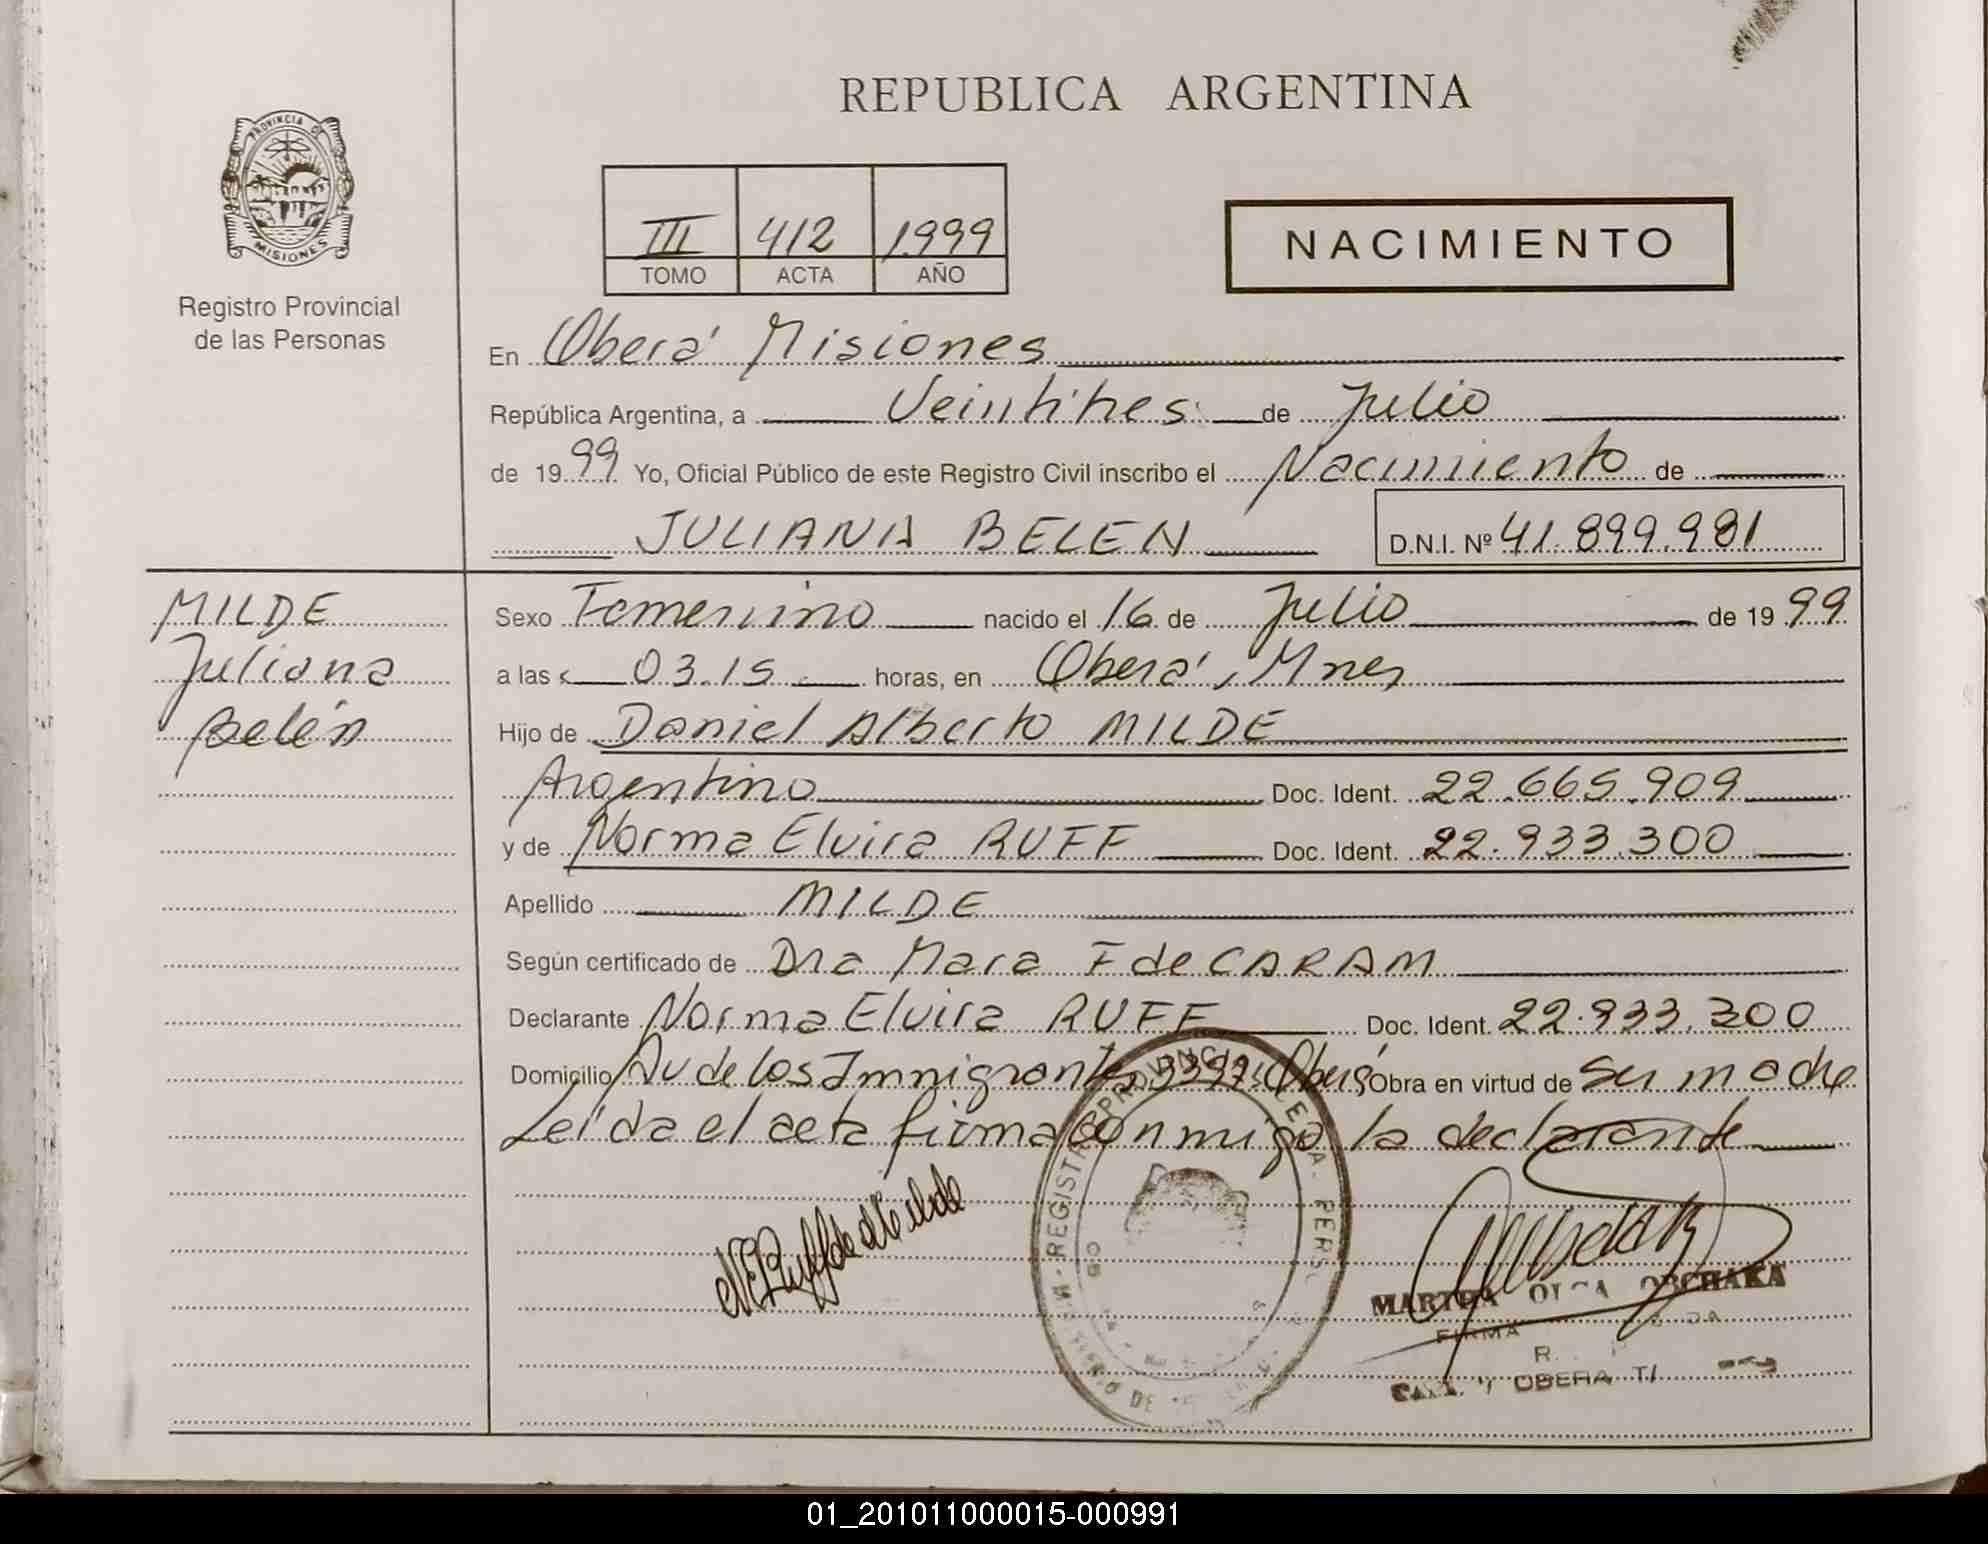 REPUBLICA ARGENTINA
PROVINCIA D
MISIONES
Registro Provincial
de las Personas
III 412 1.999
TOMO ACTA AÑO
NACIMIENTO
En Oberá Misiones
República Argentina, a Veintitres de Julio
de 1999 Yo, Oficial Público de este Registro Civil inscribo el Nacimiento de
JULIANA BELEN D.N.I. Nº 41.899.981
MILDE
Juliana
Belén
Sexo Femenino nacido el 16 de Julio de 1999
a las 03.15 horas, en Oberá, Mnes
Hijo de Daniel Alberto MILDE
Argentino Doc. Ident. 22.665.909
y de Norma Elvira RUFF Doc. Ident. 22.933.300
Apellido MILDE
Según certificado de Dra Mara F de CARAM
Declarante Norma Elvira RUFF Doc. Ident. 22.933.300
Domicilio Av de los Inmigrantes Oberá Obra en virtud de Ser madre
Leída el acta firma conmigo la declarante
REGISTRO PROVINCIAL DE LA PERS
MARTHA OLGA OBCHAKA
FIRMA
OBERA
01_201011000015-000991